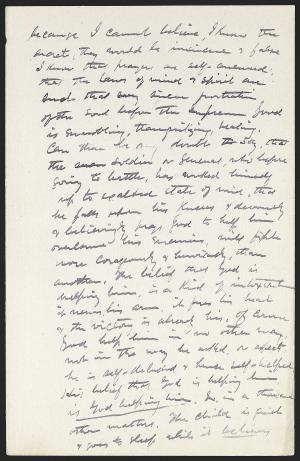 because I cannot believe, I know the
secrets, they would be insincere & false
I know that prayers are self-answered;
that the laws of mind & spirit are
such that any sincere prostration
of the Soul before the supreme Good
is ennobling, tranquilizing, healing.
Can there be any doubt, say, that
the soldier or General, who before
going to battle, has worked himself
up to exalted state of mind, that
he falls upon his knees & devoutly
& believingly prays God to help him
overcome his enemies, will fight
more courageously & heroically, than
another. The belief that God is
helping him, is a kind of intoxication
it nerves his arm, it fires his heart
& the victory is already his. Of course
God helps him in no other way,
not in the way he asked, or expects
he is self-deluded & hence self-helped
his belief that God is helping him
is God helping him. So in a thousand
other matters. The child is quiet
& goes to sleep while it believes